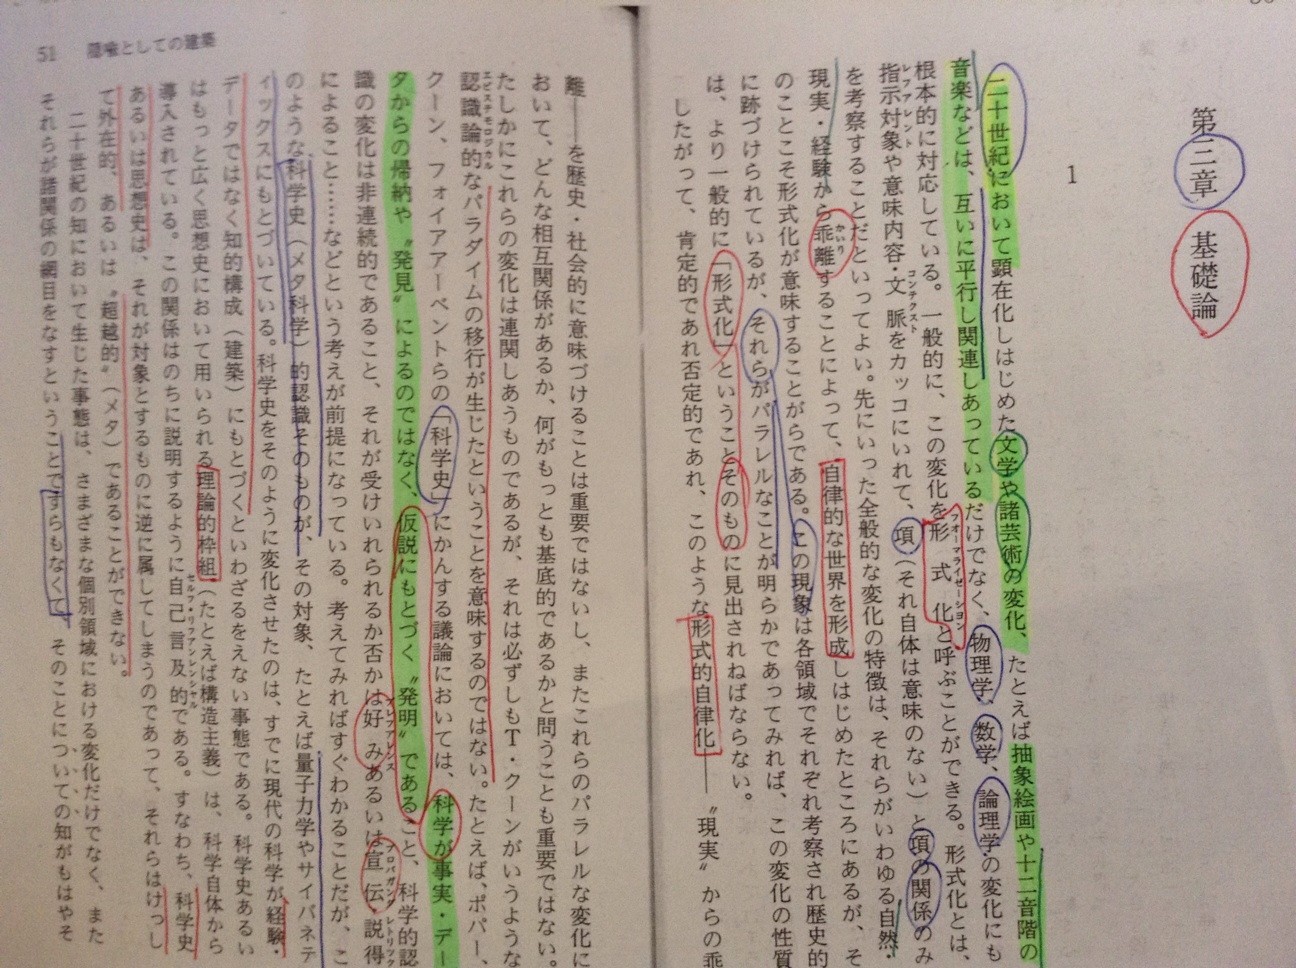 第三章 基礎論
1
二十世紀において顕在化しはじめた文学や諸芸術の変化、たとえば抽象絵画や十二音階の
音楽などは、互いに平行し関連しあっているだけでなく、物理学、数学、論理学の変化にも
根本的に対応している。一般的に、この変化を形式化と呼ぶことができる。形式化とは、
フォーマライゼーション
指示対象や意味内容・文脈をカッコにいれて、項（それ自体は意味のない）と項の関係のみ
レファレント
コンテクスト
を考察することだといってよい。先にいった全般的な変化の特徴は、それらがいわゆる自然・
現実・経験から乖離することによって、自律的な世界を形成しはじめたところにあるが、そ
かいり
のことこそ形式化が意味することがらである。この現象は各領域でそれぞれ考察され歴史的
に跡づけられているが、それらがパラレルなことが明らかであってみれば、この変化の性質
は、より一般的に「形式化」ということそのものに見出されねばならない。
したがって、肯定的であれ否定的であれ、このような形式的自律化――〝現実〟からの乖
51 隠喩としての建築
離――を歴史・社会的に意味づけることは重要ではないし、またこれらのパラレルな変化に
おいて、どんな相互関係があるか、何がもっとも基底的であるかと問うことも重要ではない。
たしかにこれらの変化は連関しあうものであるが、それは必ずしもT・クーンがいうような
認識論的なパラダイムの移行が生じたということを意味するのではない。たとえば、ポパー、
エピステモロジカル
クーン、フォイアアーベントらの「科学史」にかんする議論においては、科学が事実・デー
タからの帰納や〝発見〟によるのではなく、仮説にもとづく〝発明〟であること、科学的認
識の変化は非連続的であること、それが受けいれられるか否かは好みあるいは宣伝・説得
プレファレンス
プロパガンダ
レトリック
によること……などという考えが前提になっている。考えてみればすぐわかることだが、こ
のような科学史（メタ科学）的認識そのものが、その対象、たとえば量子力学やサイバネテ
ィックスにもとづいている。科学史をそのように変化させたのは、すでに現代の科学が経験・
データではなく知的構成（建築）にもとづくといわざるをえない事態である。科学史あるい
はもっと広く思想史において用いられる理論的枠組（たとえば構造主義）は、科学自体から
導入されている。この関係はのちに説明するように自己言及的である。すなわち、科学史
セルフ・リファレンシャル
あるいは思想史は、それが対象とするものに逆に属してしまうのであって、それらはけっし
て外在的、あるいは〝超越的〟（メタ）であることができない。
二十世紀の知において生じた事態は、さまざまな個別領域における変化だけでなく、また
それらが諸関係の網目をなすということですらもなく、そのことについての知がもはやそ